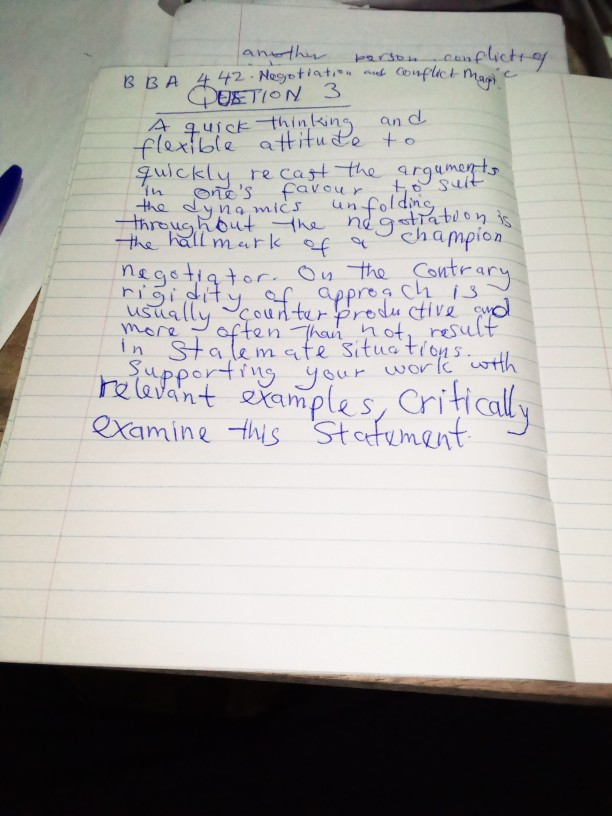 another person. conflict of
BBA 442. Negotiation and Conflict Mag'c
QUESTION 3
A quick thinking and
flexible attitude to
quickly recast the arguments
in one's favour to suit
the dynamics unfolding
throughout the negotiation is
the hallmark of a champion
negotiator. On the Contrary
rigidity of approach is
usually counterproductive and
more often than not, result
in Stalemate situations.
Supporting your work with
relevant examples, Critically
examine this Statement.